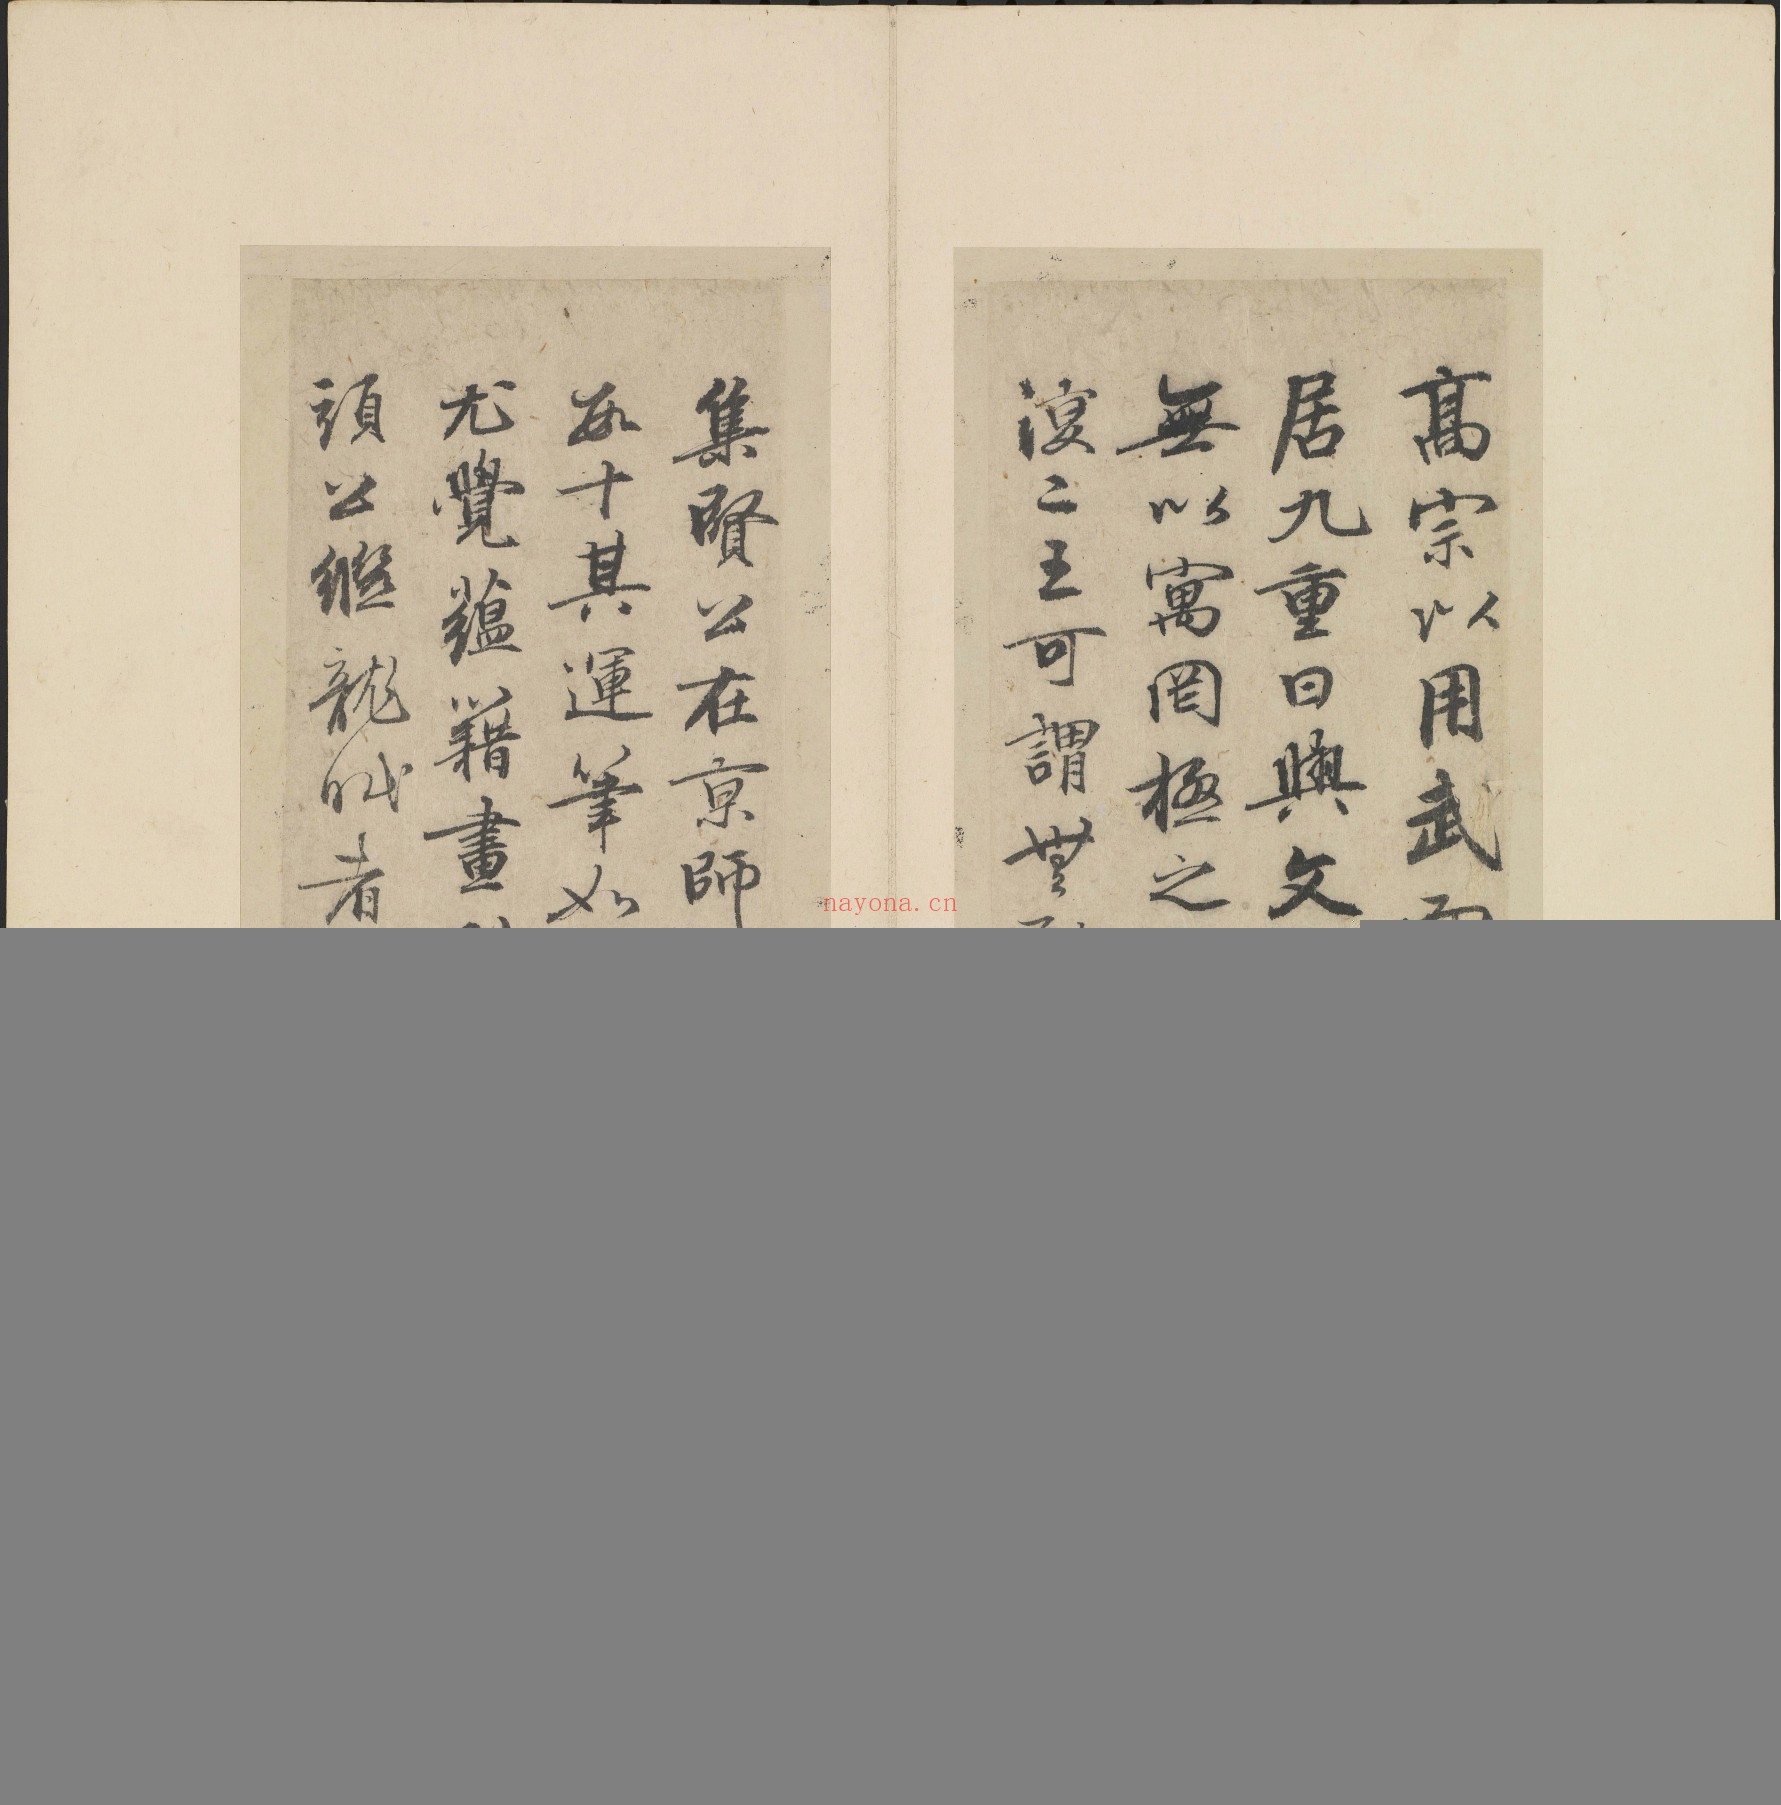 高宗以用武
居九重日與文
無以寓罔極之
復二王可謂無
集賢公在京師
十其運筆如
尤覺蘊藉畫
頭公縱龍
者
nayona.cn